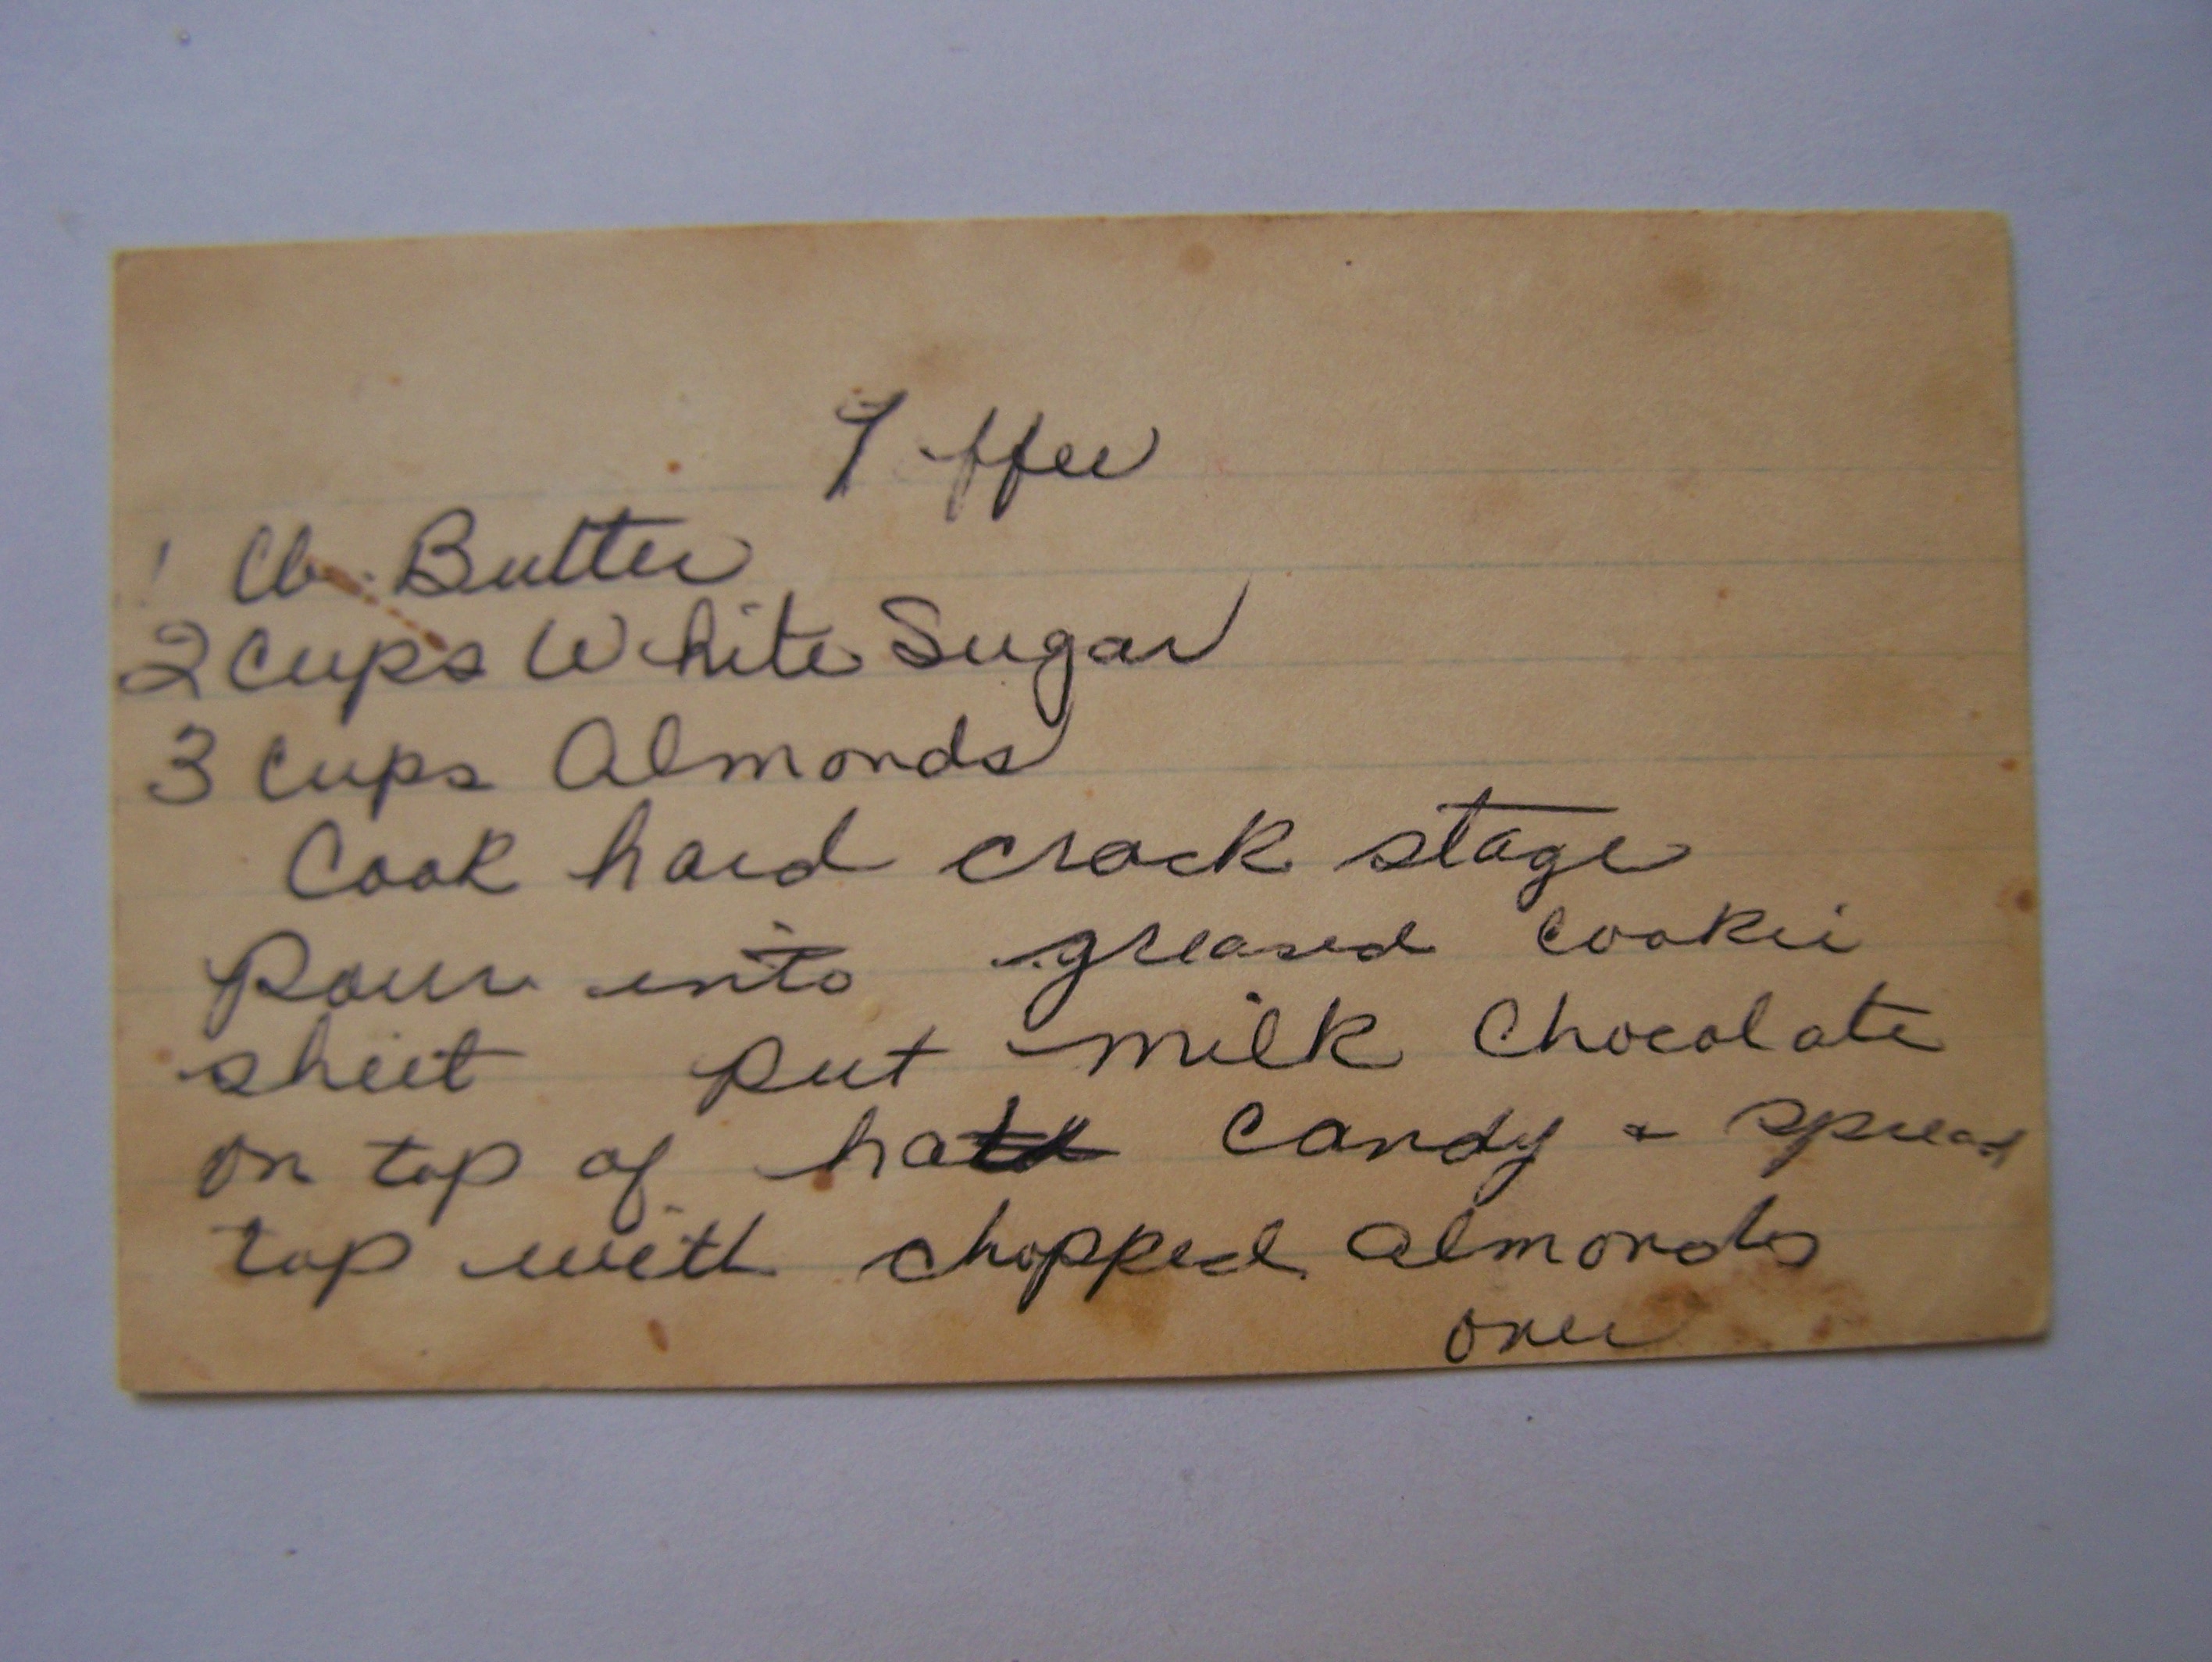 Toffee
1 lb. Butter
2 Cups White Sugar
3 Cups Almonds
Cook hard crack stage
Pour into greased cookie
sheet put milk Chocolate
on top of hot candy & spread
top with chopped almonds
over